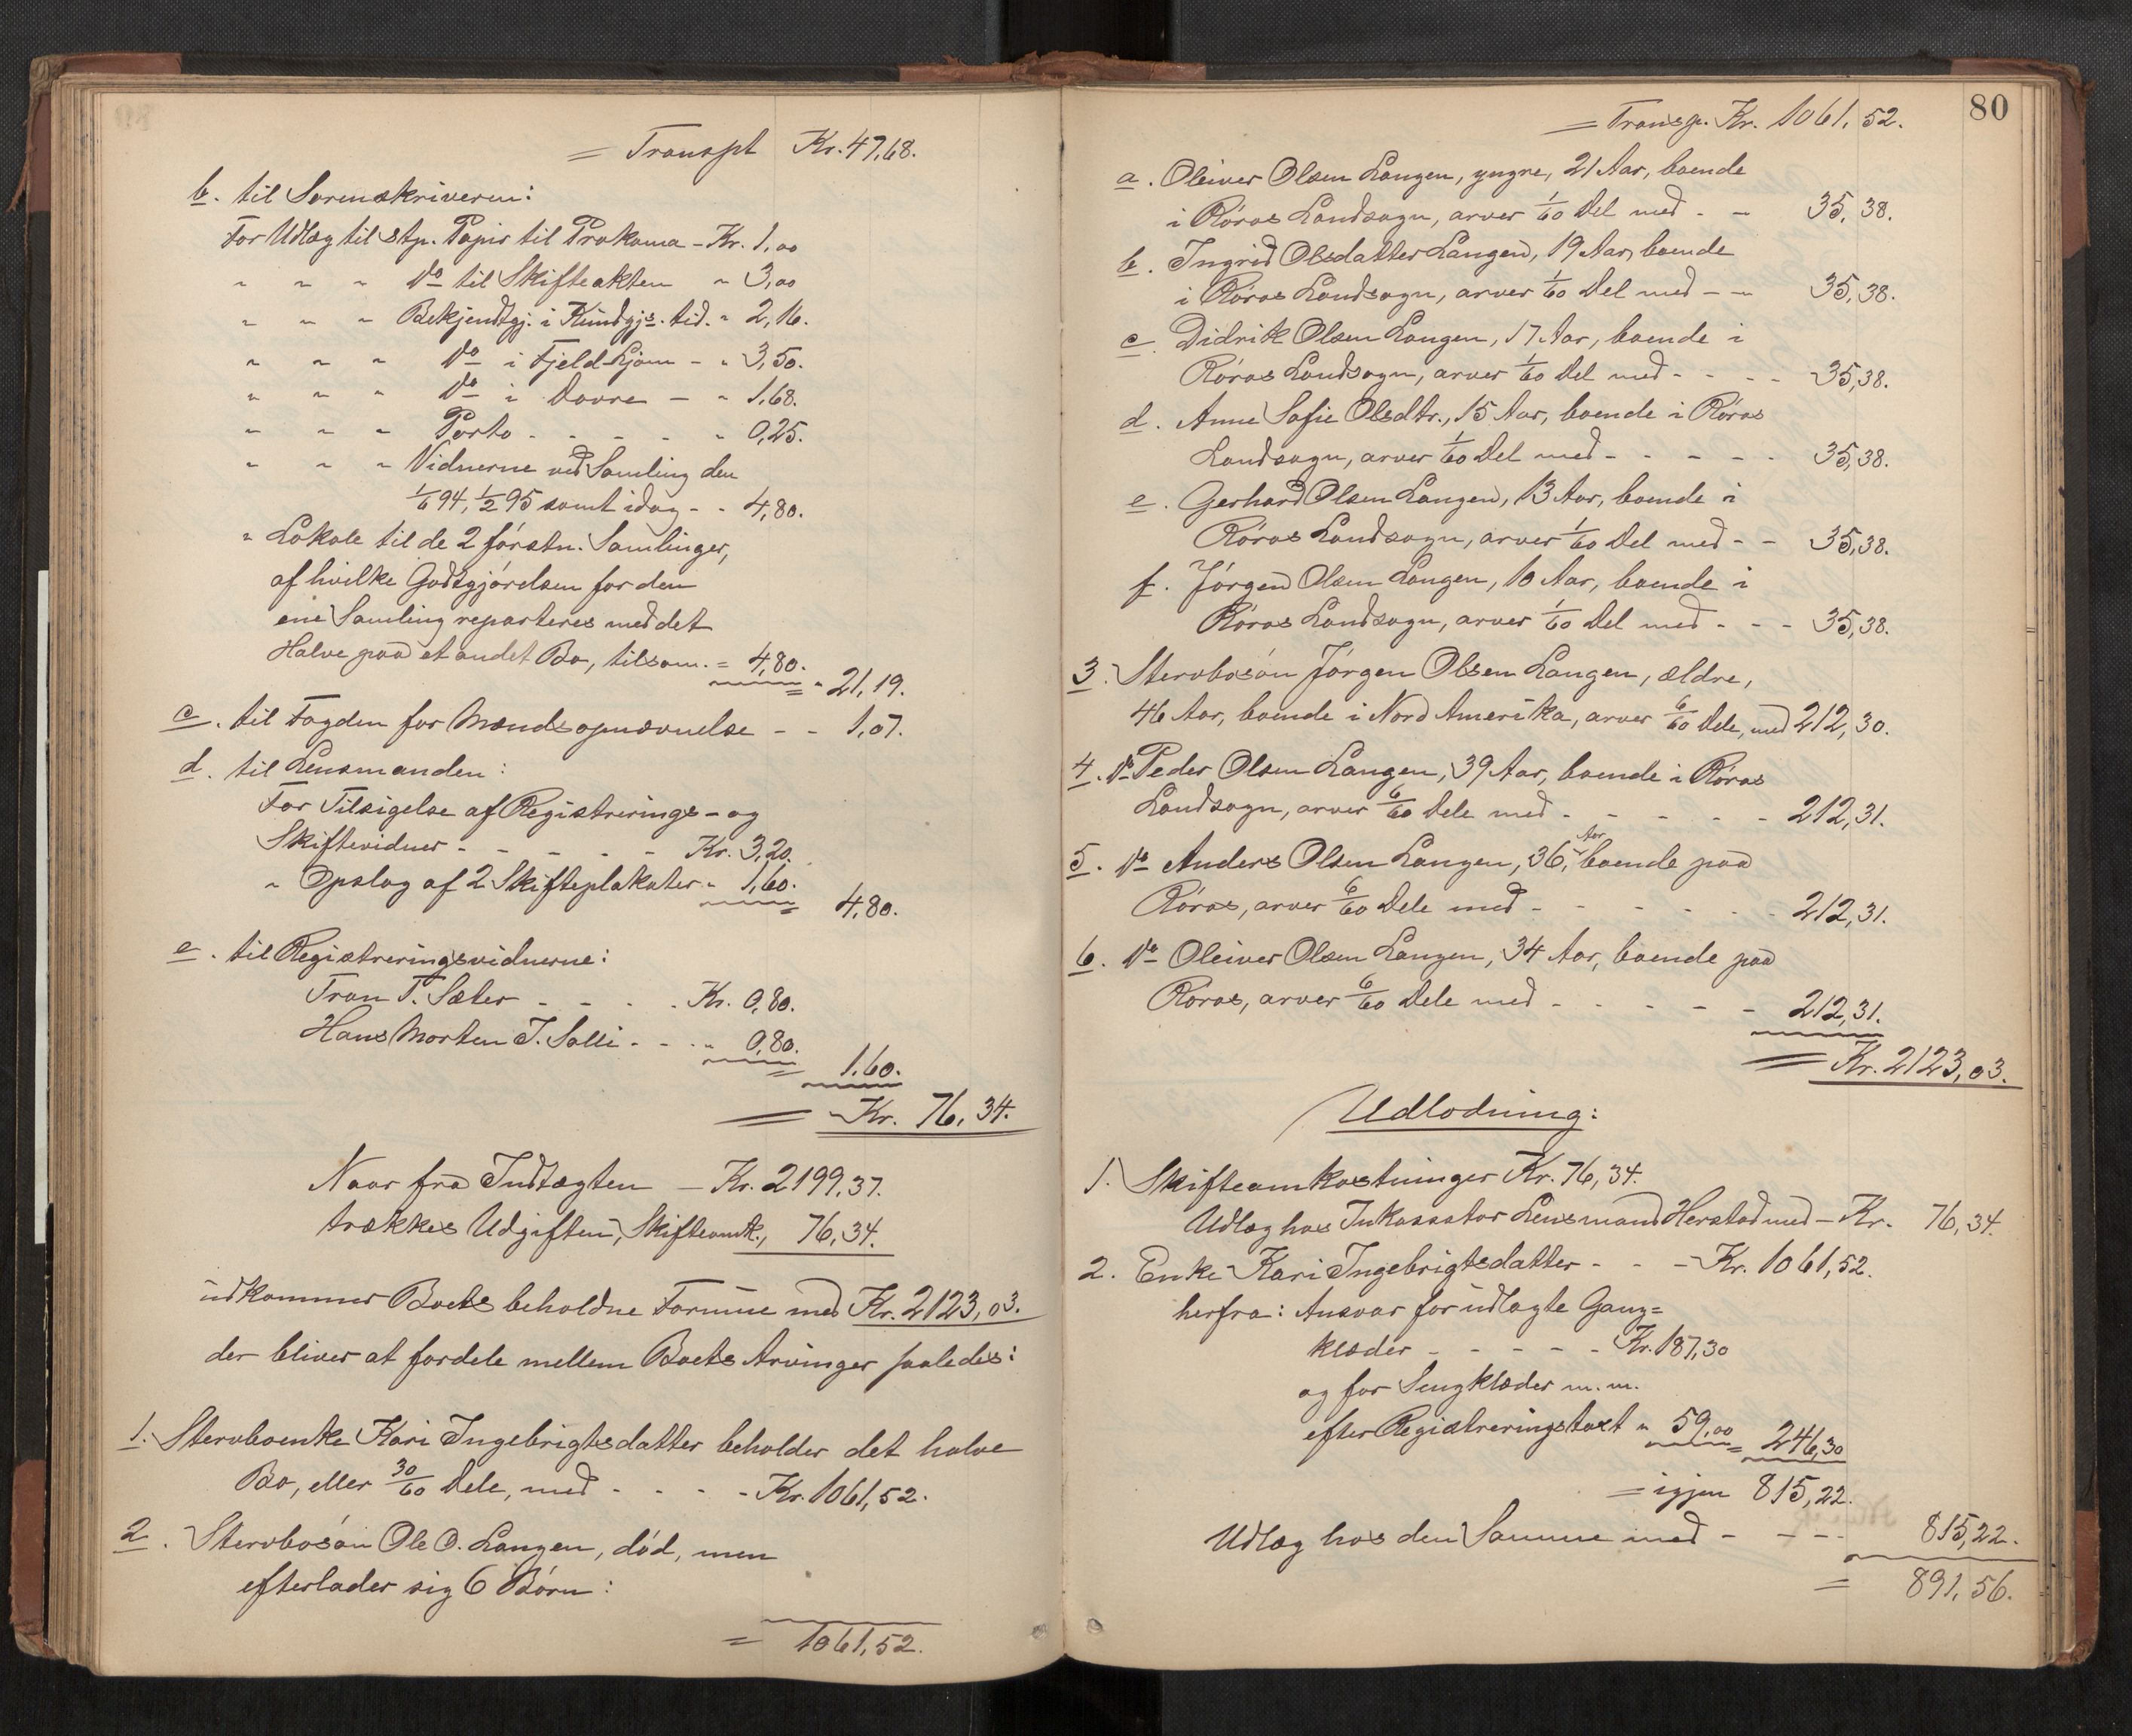 = Transpt Kr. 47,68.
b. til Sorenskriveren:
For Udlæg til stp. Papir til Proklama - Kr. 1,00
" " " Do til Skifteakten " 3,00
" " " Bekjendtgj. i Kundgjs. tid. " 2,16.
" " " Do i Fjeld-Ljom - " 3,50.
" " " Do i Dovre - " 1,68.
" " " Porto - - - - " 0,25.
" " " Vidnerne ved Samling den
1/6 94, 1/2 95 samt idag - - 4,80.
" Lokale til de 2 förstn. Samlinger,
af hvilke Godtgjörelsen for den
ene Samling reparteres med det
Halve paa et andet Bo, tilsam. = 4,80. " 21,19.
c. til Fogden for Mændsopnævnelse - - 1,07.
d. til Lensmanden:
For Tilsigelse af Registrerings- og
Skiftevidner - - - - - Kr. 3,20.
" Opslag af 2 Skifteplakater " 1,60. 4,80.
e. til Registreringsvidnerne:
Tron T. Sæter - - - - Kr. 0,80.
Hans Morten J. Solli - - - " 0,80. 1,60.
= Kr. 76,34.
Naar fra Indtægten - Kr. 2199,37.
trækkes Udgiften, Skifteomk., 76,34.
udkommer Boets beholdne Formue med Kr. 2123,03.
der bliver at fordele mellem Boets Arvinger saaledes:
1. Stervboenke Kari Ingebrigtsdatter beholder det halve
Bo, eller 30/60 Dele, med - - - - Kr. 1061,52.
2. Stervbosön Ole O. Langen, död, men
efterlader sig 6 Börn:
= 1061,52.
80
= Transp. Kr. 1061,52.
a. Oleiver Olsen Langen, yngre, 21 Aar, boende
i Röros Landsogn, arver 1/60 Del med - - 35,38.
b. Ingrid Olsdatter Langen, 19 Aar, boende
i Röros Landsogn, arver 1/60 Del med - - 35,38.
c. Didrik Olsen Langen, 17 Aar, boende i
Röros Landsogn, arver 1/60 Del med - - - - 35,38.
d. Anne Sofie Olsdtr., 15 Aar, boende i Röros
Landsogn, arver 1/60 Del med - - - - - 35,38.
e. Gerhard Olsen Langen, 13 Aar, boende i
Röros Landsogn, arver 1/60 Del med - - 35,38.
f. Jörgen Olsen Langen, 10 Aar, boende i
Röros Landsogn, arver 1/60 Del med - - - 35,38.
3. Stervbosön Jörgen Olsen Langen, ældre,
46 Aar, boende i Nord Amerika, arver 6/60 Dele, med 212,30.
4. Do Peder Olsen Langen, 39 Aar, boende i Röros
Landsogn, arver 6/60 Dele med - - - - - - 212,31.
5. Do Anders Olsen Langen, 36 Aar, boende paa
Röros, arver 6/60 Dele med - - - - - - 212,31.
6. Do Oleiver Olsen Langen, 34 Aar, boende paa
Röros, arver 6/60 Dele med - - - - - 212,31.
= Kr. 2123,03.
Udlodning:
1. Skifteomkostninger Kr. 76,34.
Udlæg hos Inkassator Lensmand Herstad med - Kr. 76,34.
2. Enke Kari Ingebrigtsdatter - - - Kr. 1061,52.
herfra: Ansvar for udlagte Gang=
klæder - - - - - Kr. 187,30
og for Sengklæder m. m.
efter Registreringstaxt " 59,00 = 246,30
= igjen 815,22.
Udlæg hos den Samme med - - - - 815,22.
= 891,56.